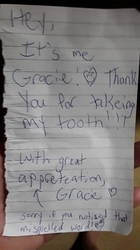 Hey,
It's me
Gracie! ♡ Thank
You for takeing
my tooth!!!
with great
appreteation,
↑ Gracie ♡
sorry if you noticed that
mispelled word!